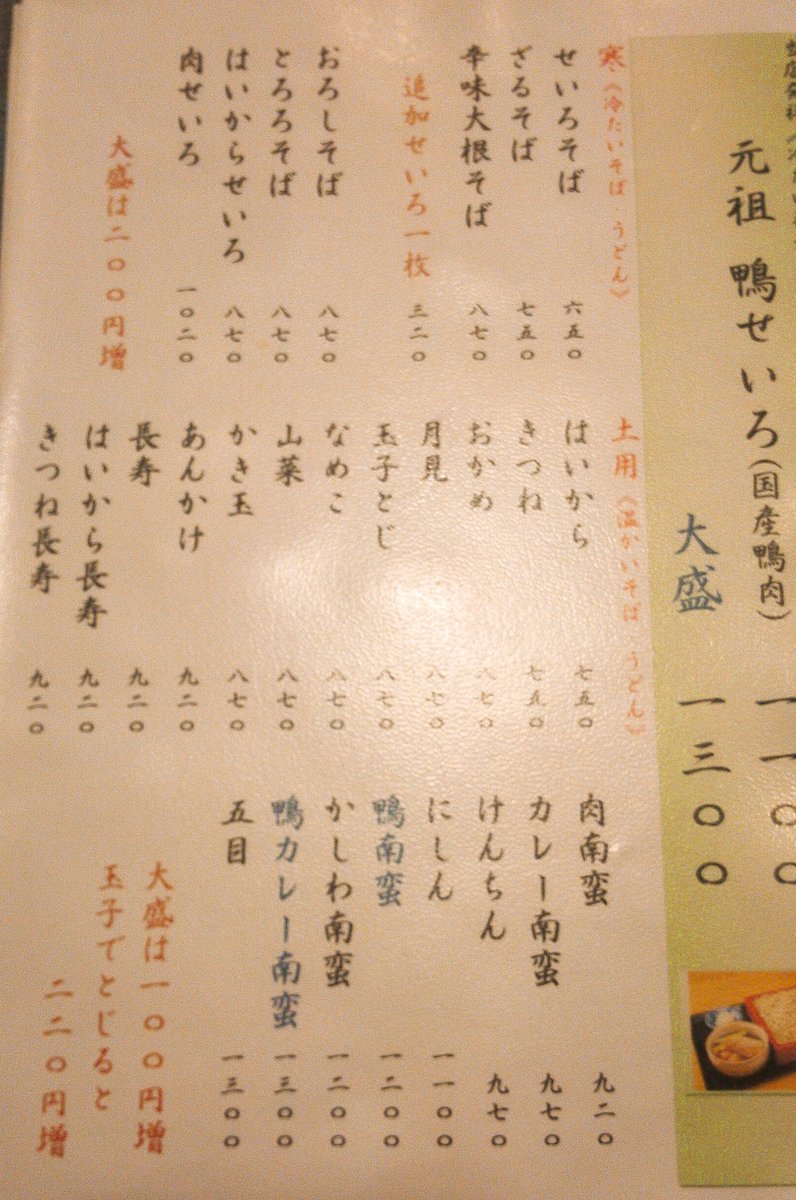 元祖 鴨せいろ(国産鴨肉) 一一〇〇
大盛 一三〇〇
寒《冷たいそば うどん》
せいろそば 六五〇
ざるそば 七五〇
辛味大根そば 八七〇
追加せいろ一枚 三二〇
おろしそば 八七〇
とろろそば 八七〇
はいからせいろ 八七〇
肉せいろ 一〇二〇
大盛は二〇〇円増
土用《温かいそば うどん》
はいから 七五〇
きつね 七五〇
おかめ 八七〇
月見 八七〇
玉子とじ 八七〇
なめこ 八七〇
山菜 八七〇
かき玉 八七〇
あんかけ 九二〇
長寿 九二〇
はいから長寿 九二〇
きつね長寿 九二〇
肉南蛮 九二〇
カレー南蛮 九七〇
けんちん 九七〇
にしん 一一〇〇
鴨南蛮 一二〇〇
かしわ南蛮 一二〇〇
鴨カレー南蛮 一三〇〇
五目 一三〇〇
大盛は一〇〇円増
玉子でとじると
二二〇円増